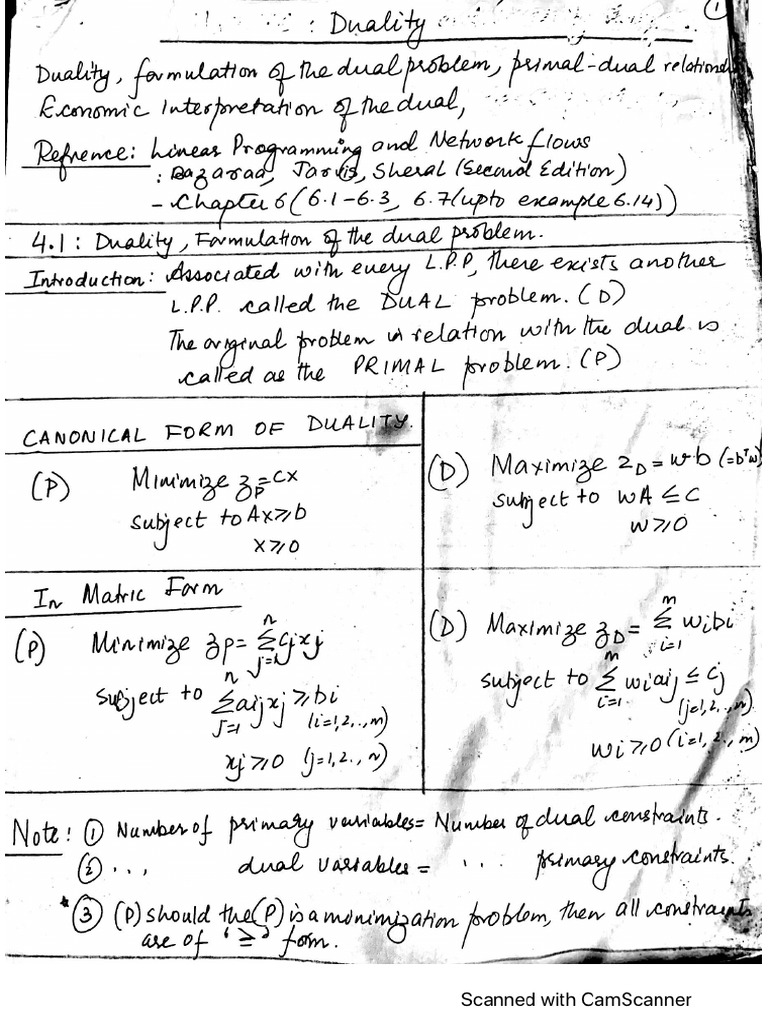 ①
: Duality
Duality, formulation of the dual problem, primal-dual relations
Economic Interpretation of the dual,
Refrence: Linear Programming and Network flows
: Bazaraa, Jarvis, Sheral (Second Edition)
- Chapter 6 (6.1-6.3, 6.7 (upto example 6.14))
4.1: Duality, Formulation of the dual problem.
Introduction: Associated with every L.P.P, there exists another
L.P.P. called the DUAL problem. (D)
The original problem in relation with the dual is
called as the PRIMAL problem. (P)
CANONICAL FORM OF DUALITY.
(P) Minimize zp=cx
subject to Ax≥b
x≥0
(D) Maximize zD=wb (=bᵀw)
subject to wA≤c
w≥0
In Matric Form
(P) Minimize zp= Σ(j=1 to n) cjxj
subject to Σ(j=1 to n) aijxj ≥ bi
(i=1,2,..,m)
xj≥0 (j=1,2..,n)
(D) Maximize zD= Σ(i=1 to m) wibi
subject to Σ(i=1 to m) wiaij ≤ cj
(j=1,2,..,n)
wi≥0 (i=1,2..,m)
Note: ① Number of primary variables= Number of dual constraints.
② . . , dual variables = . . . primary constraints.
* ③ (P) should the (P) is a monimization problem, then all constraints
are of '≥' form.
Scanned with CamScanner